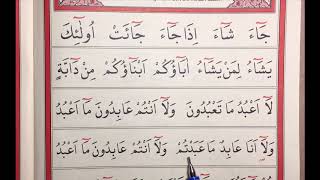 جَٓاءَ شَٓاءَ اِذَا جَٓاءَ جَٓائَتْ اُولٰٓئِكَ
يَشَٓاءُ لِمَنْ يَشَٓاءُ اٰبَٓاؤُكُمْ اَبْنَٓاؤُكُمْ مِنْ دَٓابَّةٍ
لَٓا اَعْبُدُ مَا تَعْبُدُونَ وَلَٓا اَنْتُمْ عَابِدُونَ مَٓا اَعْبُدُ
وَلَٓا اَنَا عَابِدٌ مَا عَبَدْتُمْ وَلَٓا اَنْتُمْ عَابِدُونَ مَٓا اَعْبُدُ